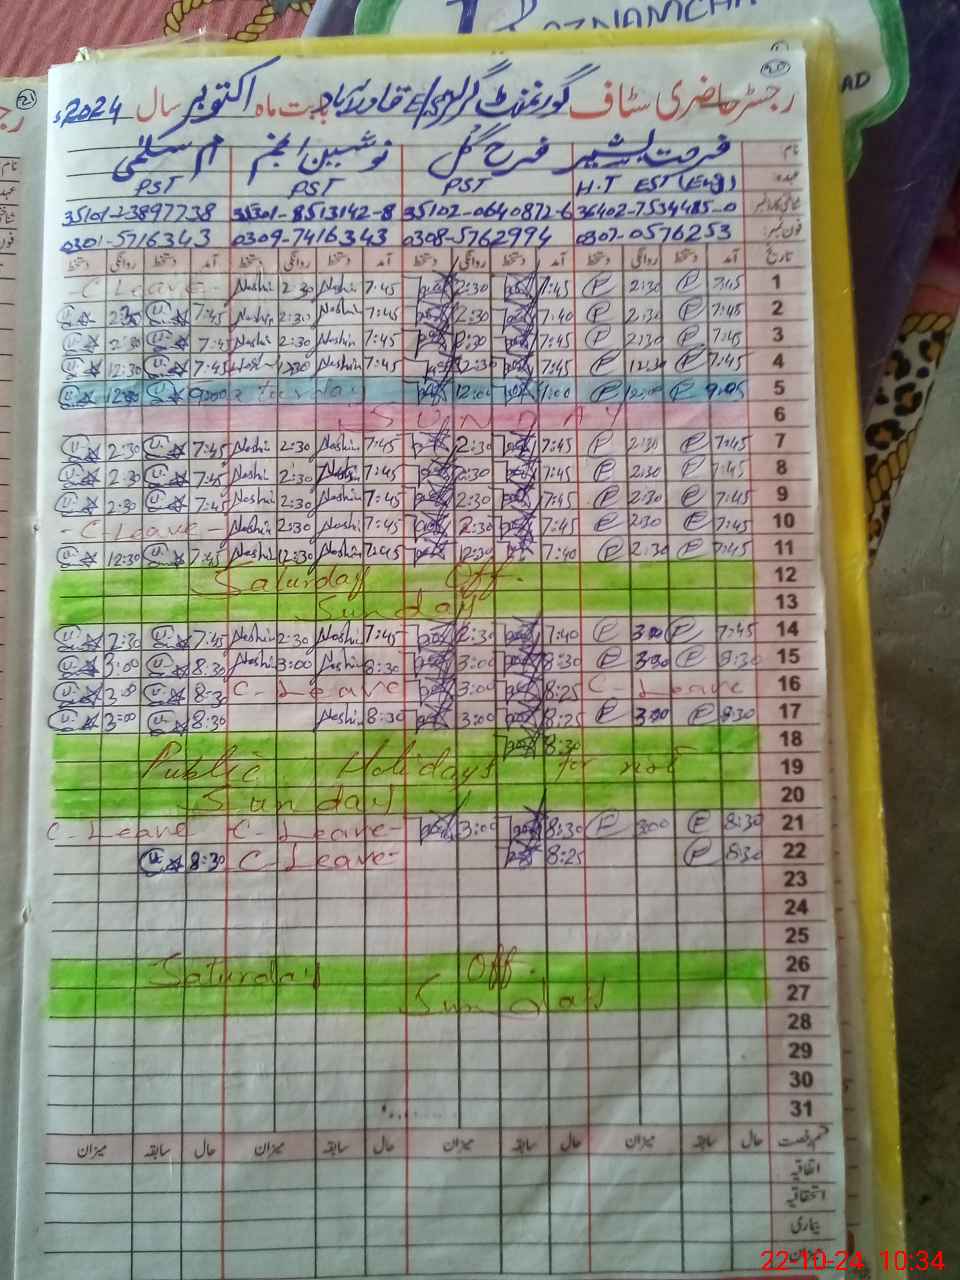 ROZNAMCHA
AD
رجسٹر حاضری سٹاف گورنمنٹ گرلز E/S قادرآباد بابت ماہ اکتوبر سال 2024ء
نام فرحت بشیر فرح گل نوشین انجم ام سلمٰی
عہدہ H.T EST (Eng) PST PST PST
36402-7534485-0 35102-0640872-6 35301-8513142-8 35101-
فون نمبر 0307-0576253 0308-5762994 0309-7416343 0301-5716343
تاریخ آمد دستخط روانگی دستخط آمد دستخط روانگی دستخط آمد دستخط روانگی دستخط آمد دستخط روانگی دستخط
1 7:45 P 2:30 P 7:45 2:30 7:45 Noshi 2:30 Noshi C Leave
2 7:45 P 2:30 P 7:40 2:30 7:45 Noshi 2:30 Noshi 7:45 2:30
3 7:45 P 2:30 P 7:45 2:30 7:45 Noshi 2:30 Noshi 7:45 2:30
4 7:45 P 12:30 P 7:45 12:30 7:45 Noshi 12:30 7:45 12:30
5 P 12:00 P 12:00 Saturday 9:00
6 SUNDAY
7 7:45 P 2:30 P 7:45 2:30 7:45 Noshi 2:30 Noshi 7:45 2:30
8 7:45 P 2:30 P 7:45 2:30 7:45 Noshi 2:30 Noshi 7:45 2:30
9 7:45 P 2:30 P 7:45 2:30 7:45 Noshi 2:30 Noshi 7:45 2:30
10 7:45 P 2:30 P 7:45 2:30 7:45 Noshi 2:30 Noshi - C-Leave -
11 7:45 P 2:30 P 7:40 12:30 7:45 Noshi 12:30 Noshi 7:45 12:30
12 Saturday Off.
13 Sunday
14 7:45 P P 7:40 2:30 7:45 Noshi 2:30 Noshi 7:45 2:30
15 8:30 P P 8:30 3:00 8:30 Noshi 3:00 Noshi 8:30 3:00
16 C-Leave 8:25 3:00 C-Leave 8:3 3:00
17 8:30 P 3:00 P 8:25 3:00 8:30 Noshi 8:30 3:00
18 8:30
19 Public Holidays for not
20 Sunday
21 8:30 P 3:00 P 8:30 3:00 C-Leave- C-Leave
22 8:30 P 8:25 C-Leave- 8:30
23
24
25
26 Saturday Off.
27 Sunday
28
29
30
31
قسم رخصت حال سابقہ میزان حال سابقہ میزان حال سابقہ میزان حال سابقہ میزان
اتفاقیہ
استحقاقیہ
بیماری
میزان
22-10-24 10:34